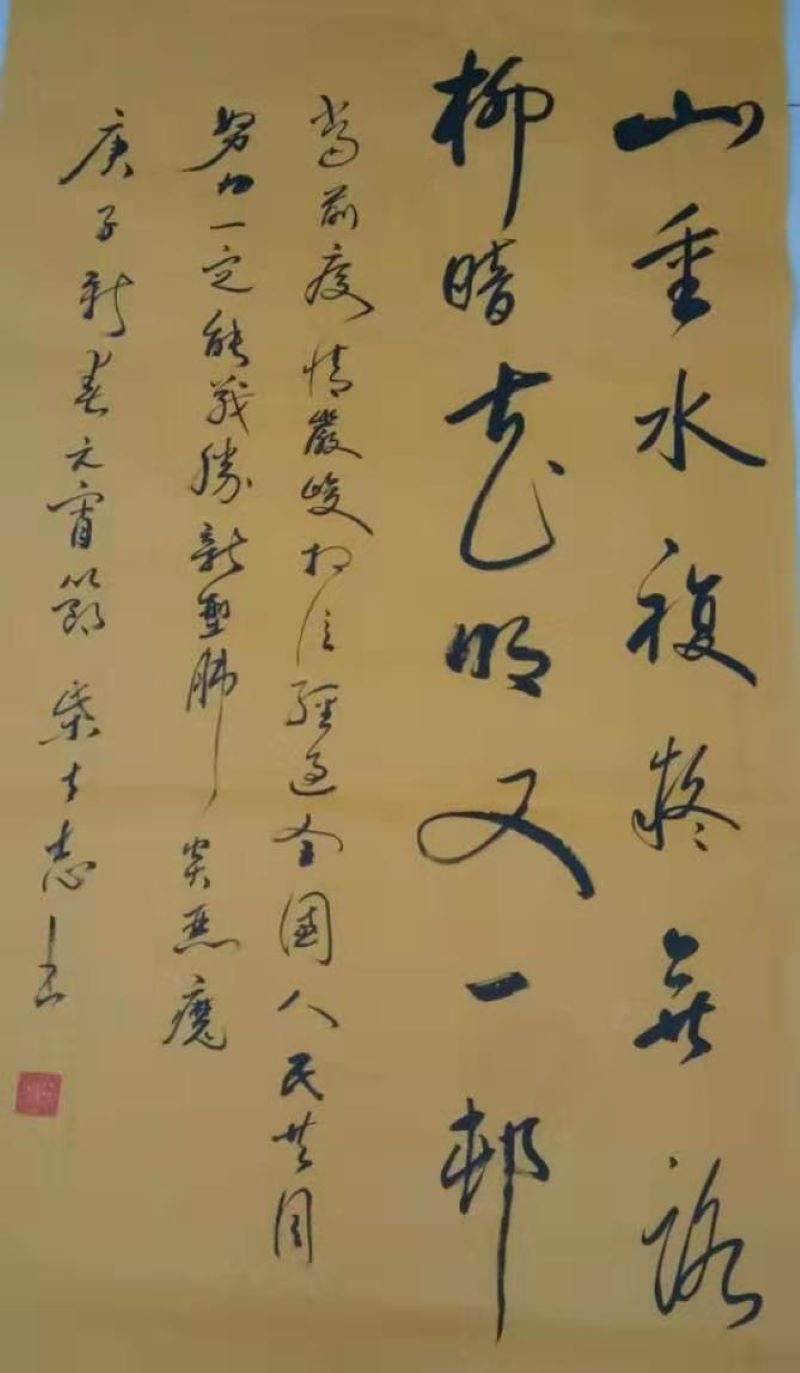 山重水複疑無路
柳暗花明又一邨
當前疫情嚴峻相信經過全國人民共同
努力一定能戰勝新型肺炎惡魔
庚子新春元宵節 柴士志书